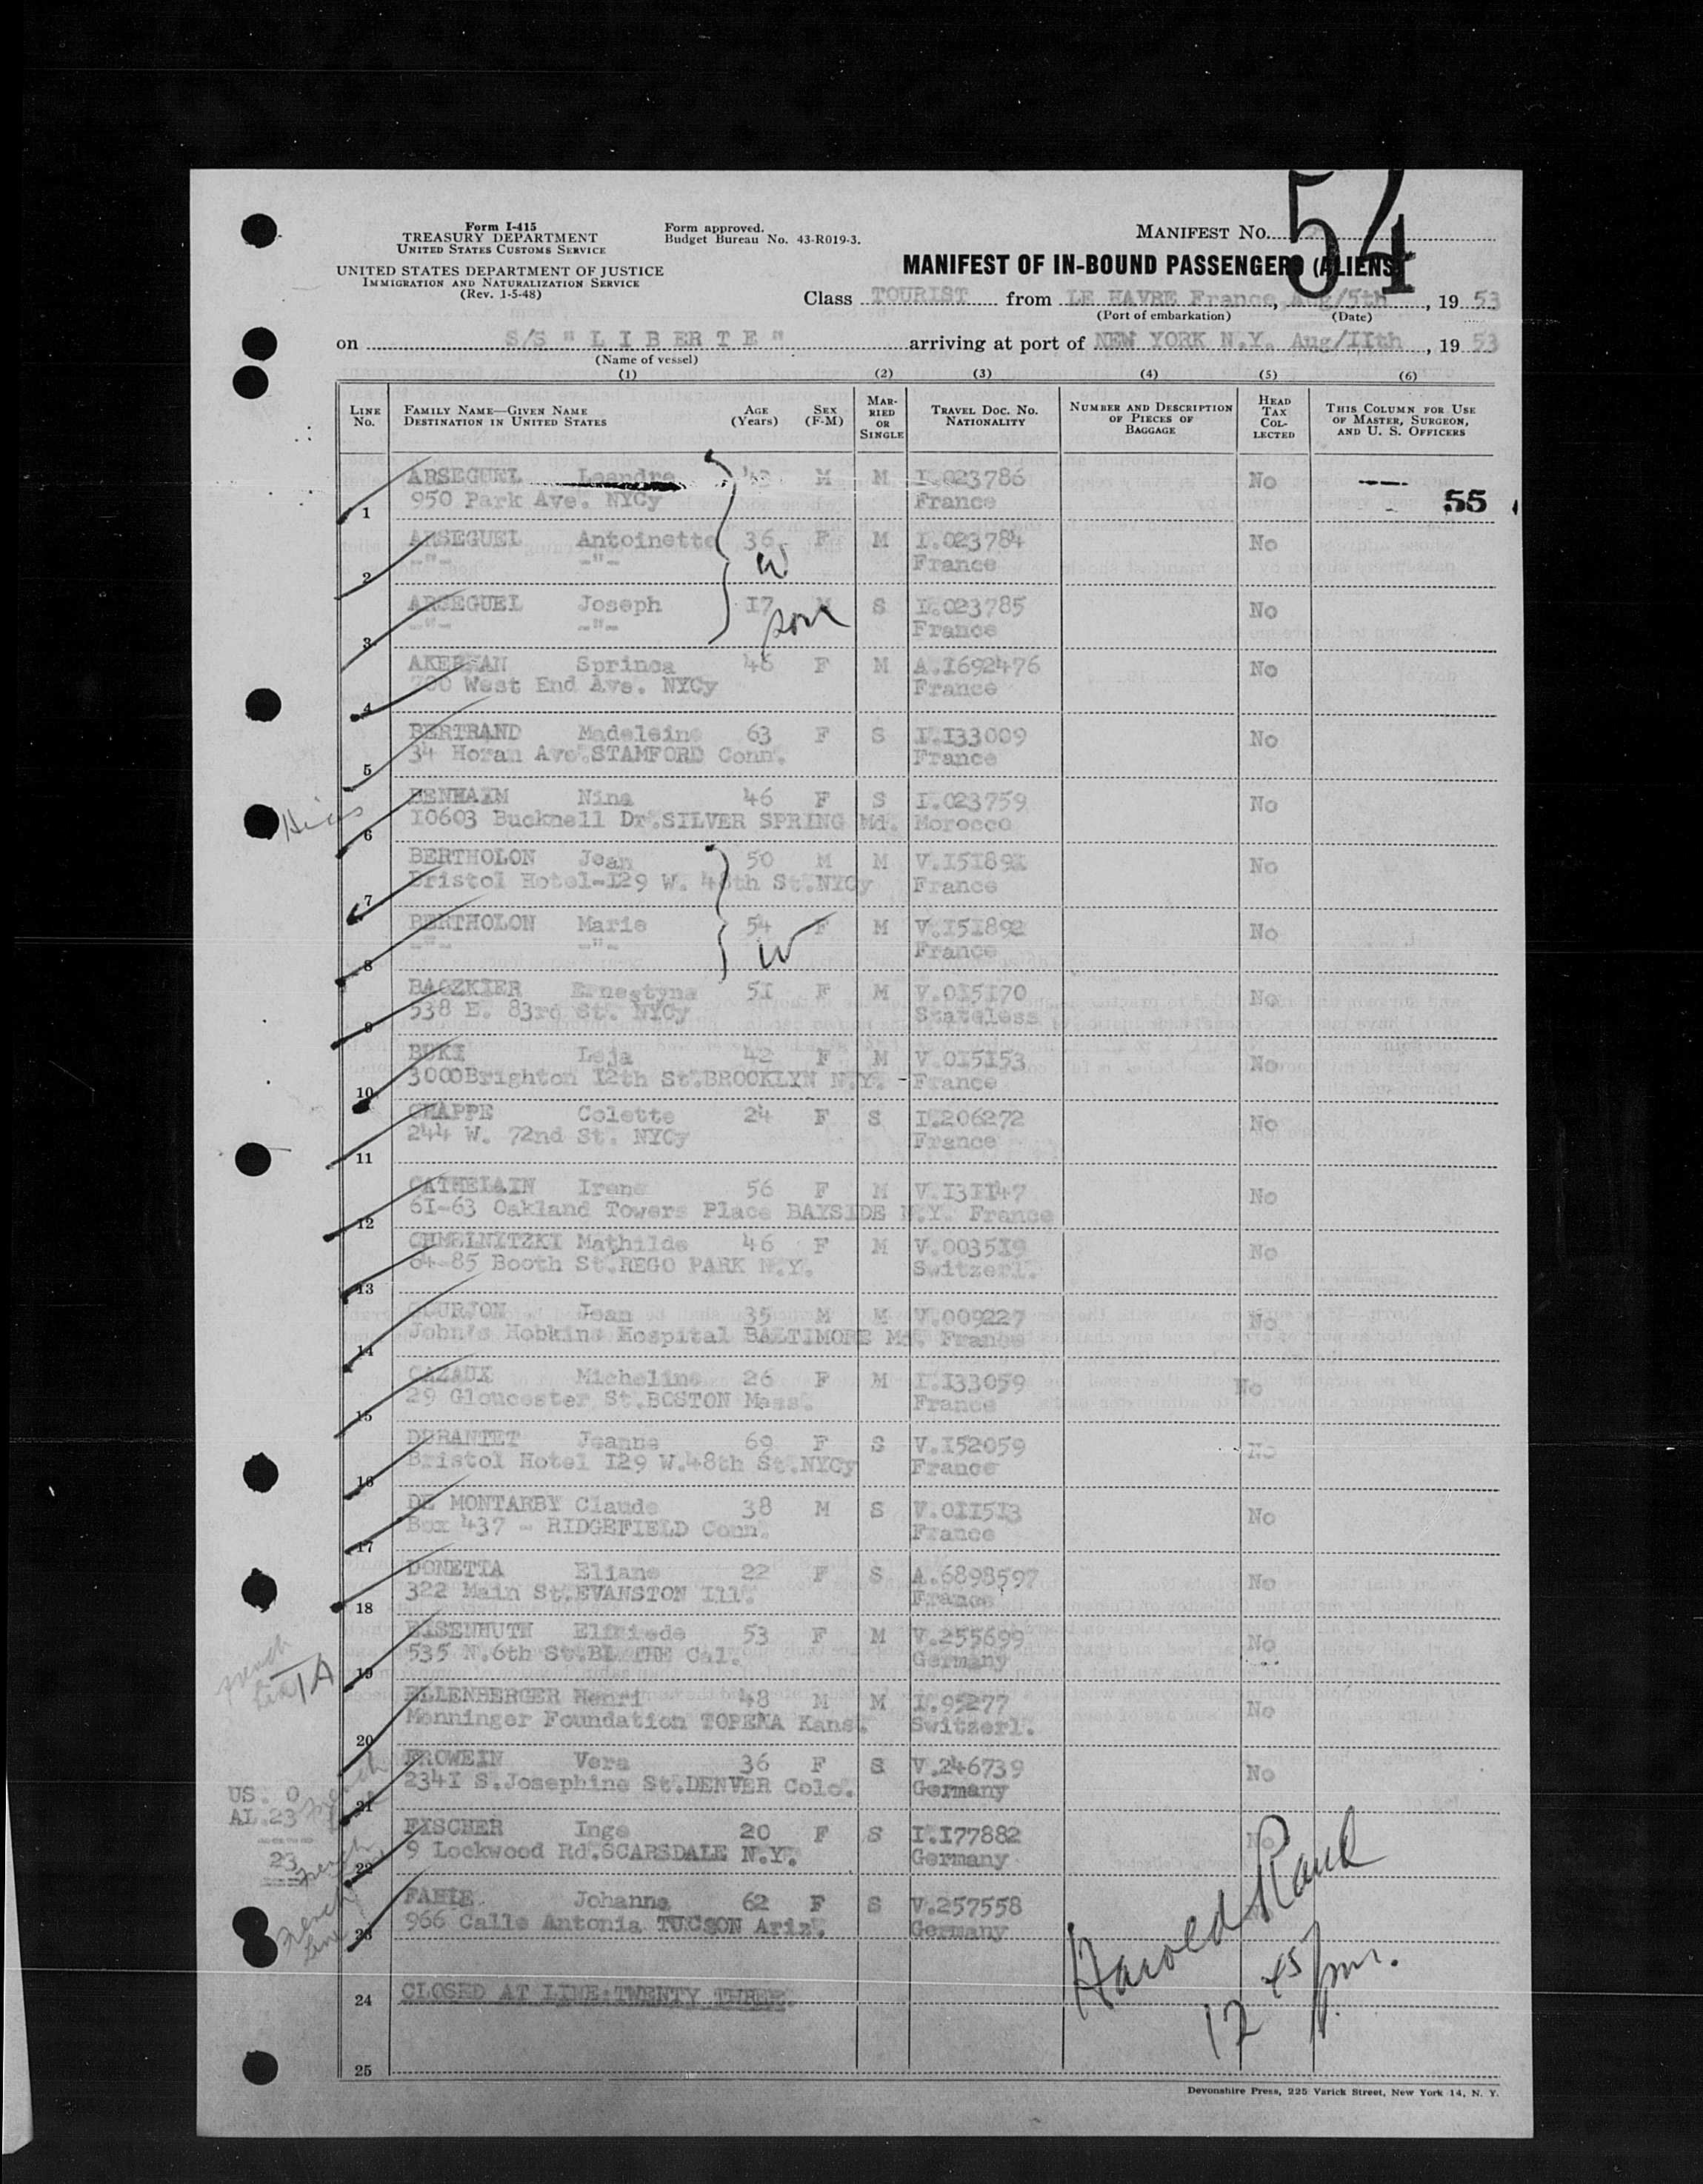 Form I-415
TREASURY DEPARTMENT
UNITED STATES CUSTOMS SERVICE
UNITED STATES DEPARTMENT OF JUSTICE
IMMIGRATION AND NATURALIZATION SERVICE
(Rev. 1-5-48)
Form approved.
Budget Bureau No. 43-R019-3.
MANIFEST NO. 54
MANIFEST OF IN-BOUND PASSENGERS (ALIENS)
Class TOURIST from LE HAVRE France, Aug/5th, 19 53
(Port of embarkation) (Date)
on S/S " L I B E R T E " arriving at port of NEW YORK N.Y. Aug/IIth, 19 53
(Name of vessel)
(1) (2) (3) (4) (5) (6)
LINE NO. FAMILY NAME—GIVEN NAME DESTINATION IN UNITED STATES AGE (Years) SEX (F-M) MARRIED OR SINGLE TRAVEL DOC. NO. NATIONALITY NUMBER AND DESCRIPTION OF PIECES OF BAGGAGE HEAD TAX COLLECTED THIS COLUMN FOR USE OF MASTER, SURGEON, AND U. S. OFFICERS
ARSEGUEL Leandre 43 M M I.023786 No
1 950 Park Ave. NYCy France 55
ARSEGUEL Antoinette 36 F M I.023784 No
2 -"- -"- W France
ARSEGUEL Joseph 17 M S I.023785 No
3 -"- -"- son France
AKERMAN Sprinca 46 F M A.I692476 No
4 700 West End Ave. NYCy France
BERTRAND Madeleine 63 F S I.I33009 No
5 34 Horan Ave.STAMFORD Conn. France
BENHAIM Nina 46 F S I.023759 No
Hias 6 I0603 Bucknell Dr.SILVER SPRING Md. Morocco
BERTHOLON Jean 50 M M V.I5I89I No
7 Bristol Hotel-I29 W. 48th St.NYCy France
BERTHOLON Marie 54 F M V.I5I892 No
8 -"- -"- W France
BAGZKIER Ernestyna 5I F M V.0I5I70 No
9 538 E. 83rd St. NYCy Stateless
BUKI Leja 42 F M V.0I5I53 No
10 3000Brighton I2th St.BROOKLYN N.Y. France
CHAPPE Colette 24 F S I.206272 No
11 244 W. 72nd St. NYCy France
CATHELAIN Irene 56 F M V.I3II47 No
12 6I-63 Oakland Towers Place BAYSIDE N.Y. France
CHMELNITZKI Mathilde 46 F M V.0035I9 No
13 64-85 Booth St.REGO PARK N.Y. Switzerl.
COURJON Jean 35 M M V.009227 No
14 John's Hobkins Hospital BALTIMORE Md. France
CAZAUX Micheline 26 F M I.I33059 No
15 29 Gloucester St.BOSTON Mass. France
DURANTET Jeanne 69 F S V.I52059 No
16 Bristol Hotel I29 W.48th St.NYCy France
DE MONTARBY Claude 38 M S V.0II5I3 No
17 Box 437 - RIDGEFIELD Conn. France
DONETTA Eliane 22 F S A.6898597 No
18 322 Main St.EVANSTON Ill. France
EISENHUTH Elfriede 53 F M V.255699 No
19 535 N.6th St.BLYTHE Cal. Germany
French Line TA
ELLENBERGER Henri 48 M M I.95277 No
20 Menninger Foundation TOPEKA Kans. Switzerl.
FROWEIN Vera 36 F S V.246739 No
21 234I S.Josephine St.DENVER Colo. Germany
US. 0
AL.23
23
French
FISCHER Inge 20 F S I.I77882 No
22 9 Lockwood Rd.SCARSDALE N.Y. Germany
French
FAHLE Johanna 62 F S V.257558
23 966 Calle Antonia TUCSON Ariz. Germany
French Line
24 CLOSED AT LINE:TWENTY THREE.
25
Harold Rauh
12 45 pm.
Devonshire Press, 225 Varick Street, New York 14, N. Y.